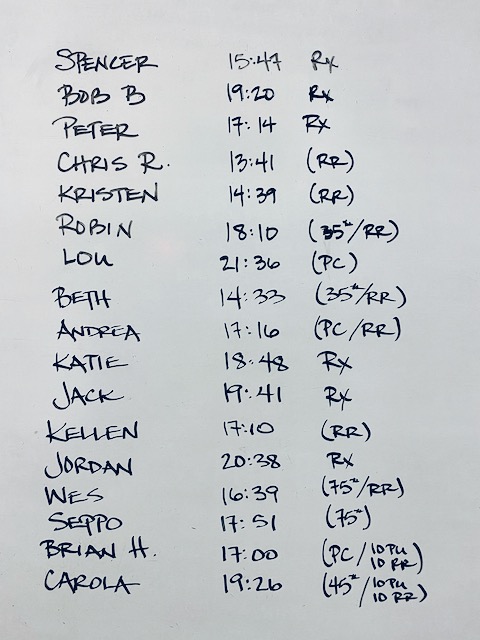 SPENCER 15:47 Rx
BOB B 19:20 Rx
PETER 17:14 Rx
CHRIS R. 13:41 (RR)
KRISTEN 14:39 (RR)
ROBIN 18:10 (35#/RR)
LOU 21:36 (PC)
BETH 14:33 (35#/RR)
ANDREA 17:16 (PC/RR)
KATIE 18:48 Rx
JACK 19:41 Rx
KELLEN 17:10 (RR)
JORDAN 20:38 Rx
WES 16:39 (75#/RR)
SEPPO 17:51 (75#)
BRIAN H. 17:00 (PC/10 PU
10 RR)
CAROLA 19:26 (45#/10 PU
10 RR)